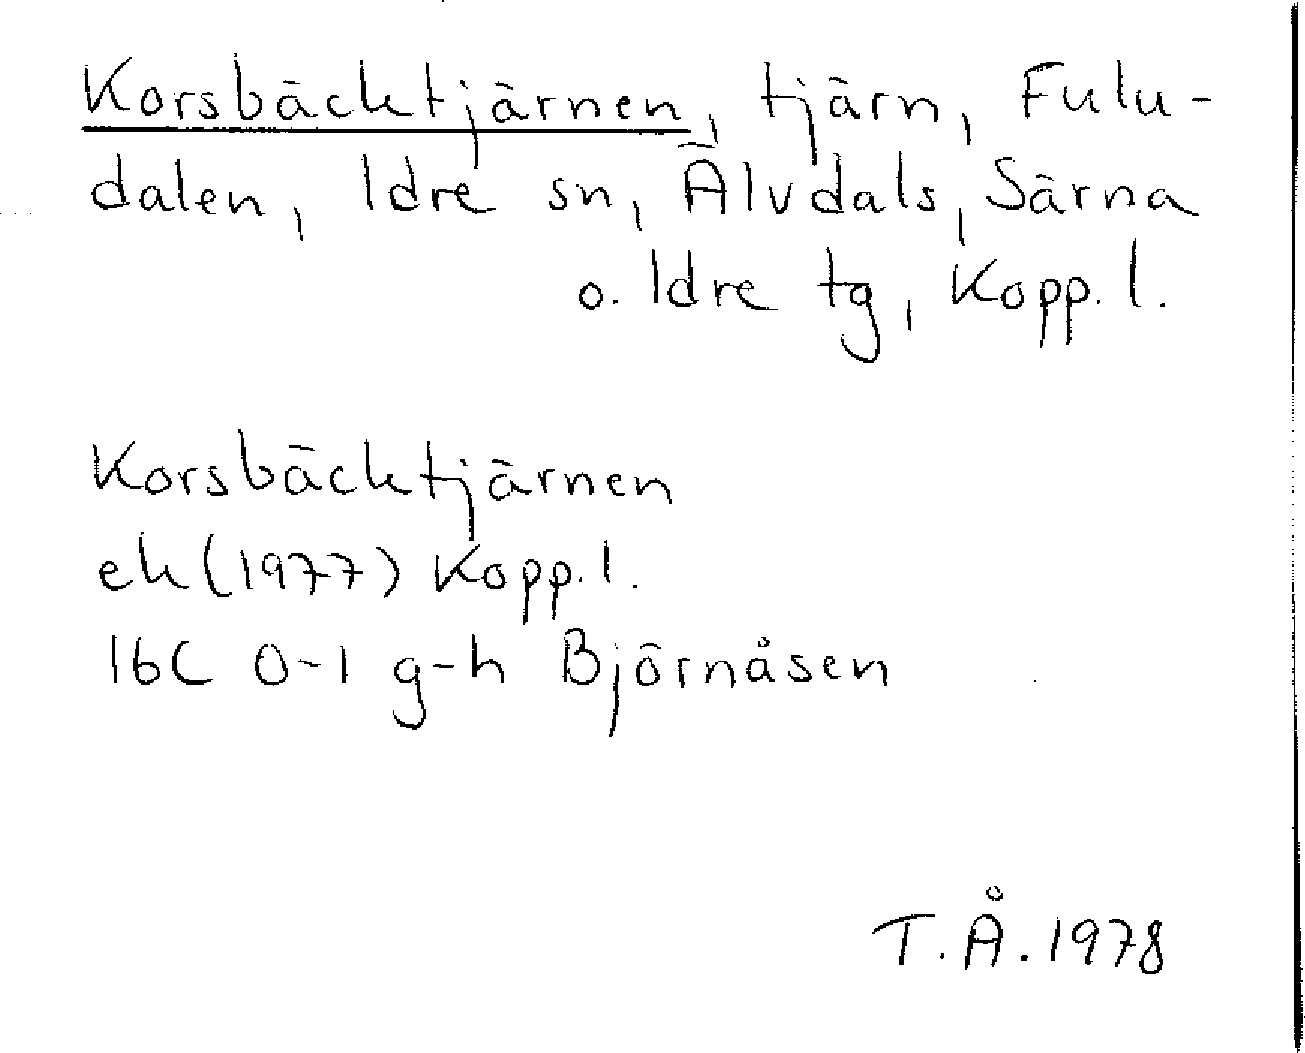 Korsbäcktjärnen, tjärn, Fulu-
dalen, Idre sn, Älvdals, Särna
o. Idre tg, Kopp. l.
Korsbäcktjärnen
ek (1977) Kopp. l.
16C 0-1 g-h Björnåsen
T. Å. 1978